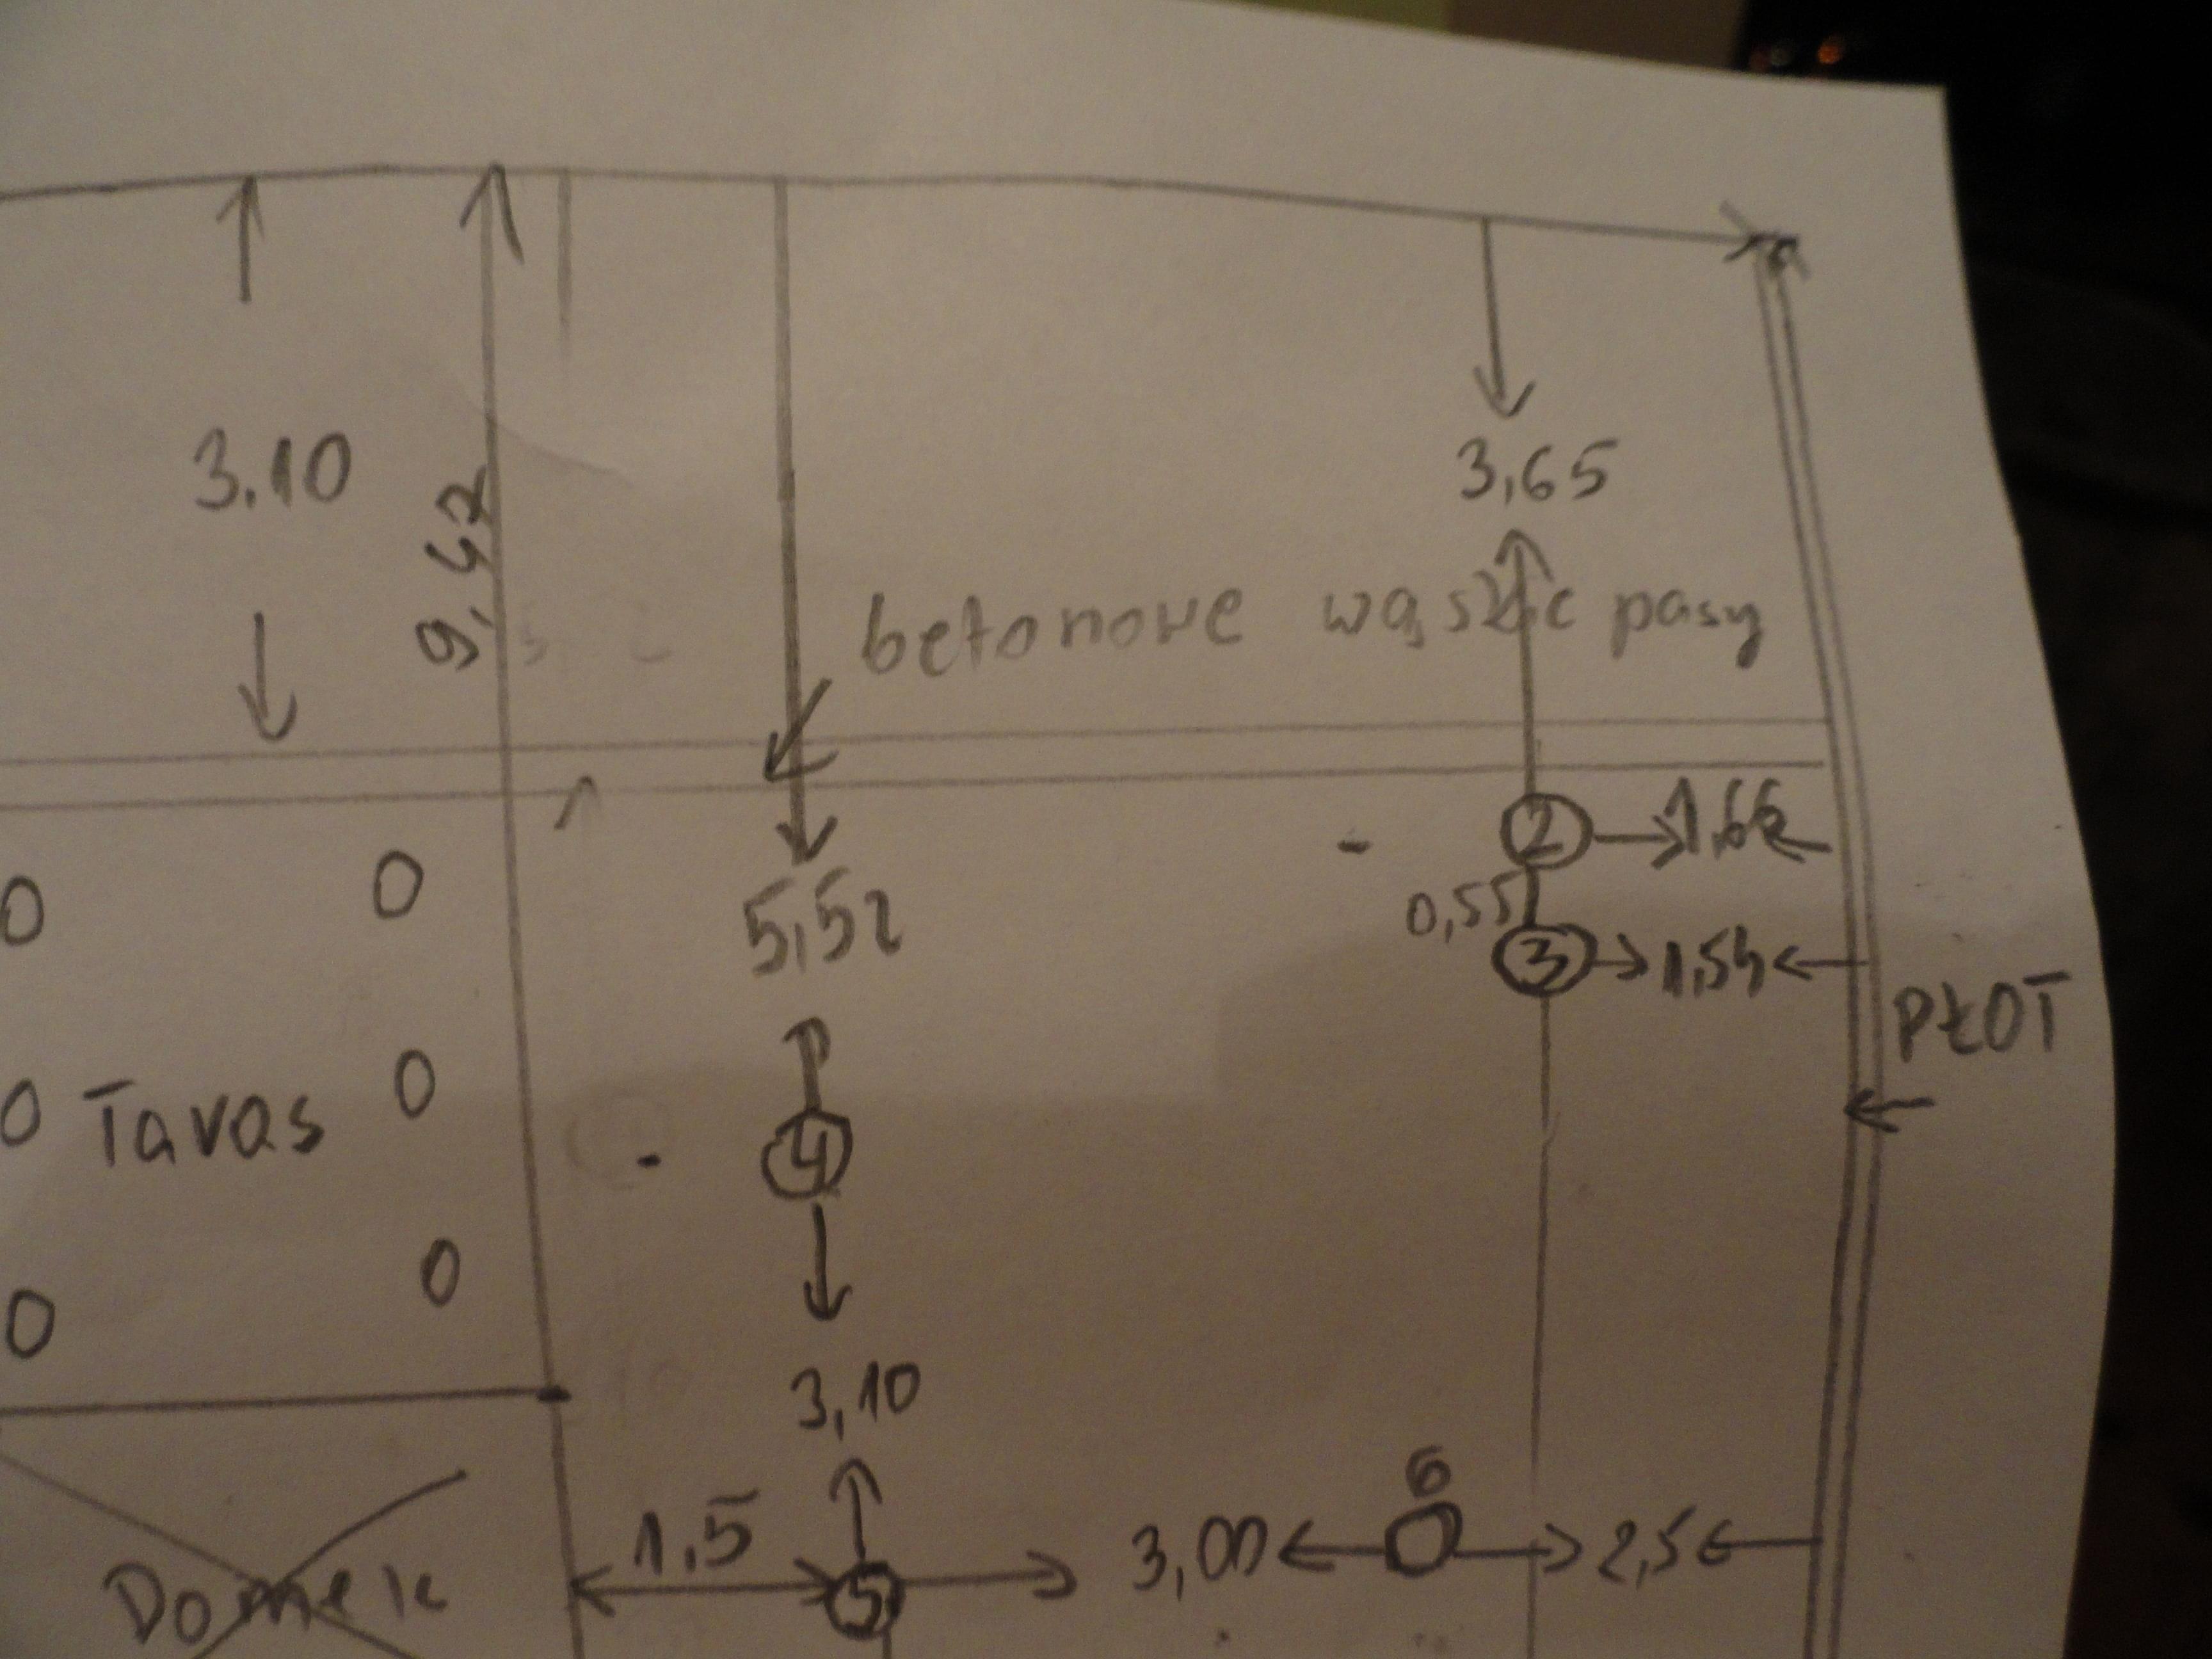 3.10
9,42
3,65
betonowe wąskie pasy
2
1,66
0,55
3
1,54
5,52
PŁOT
Taras
4
3,10
6
1,5
3,00
2,5
5
Domek